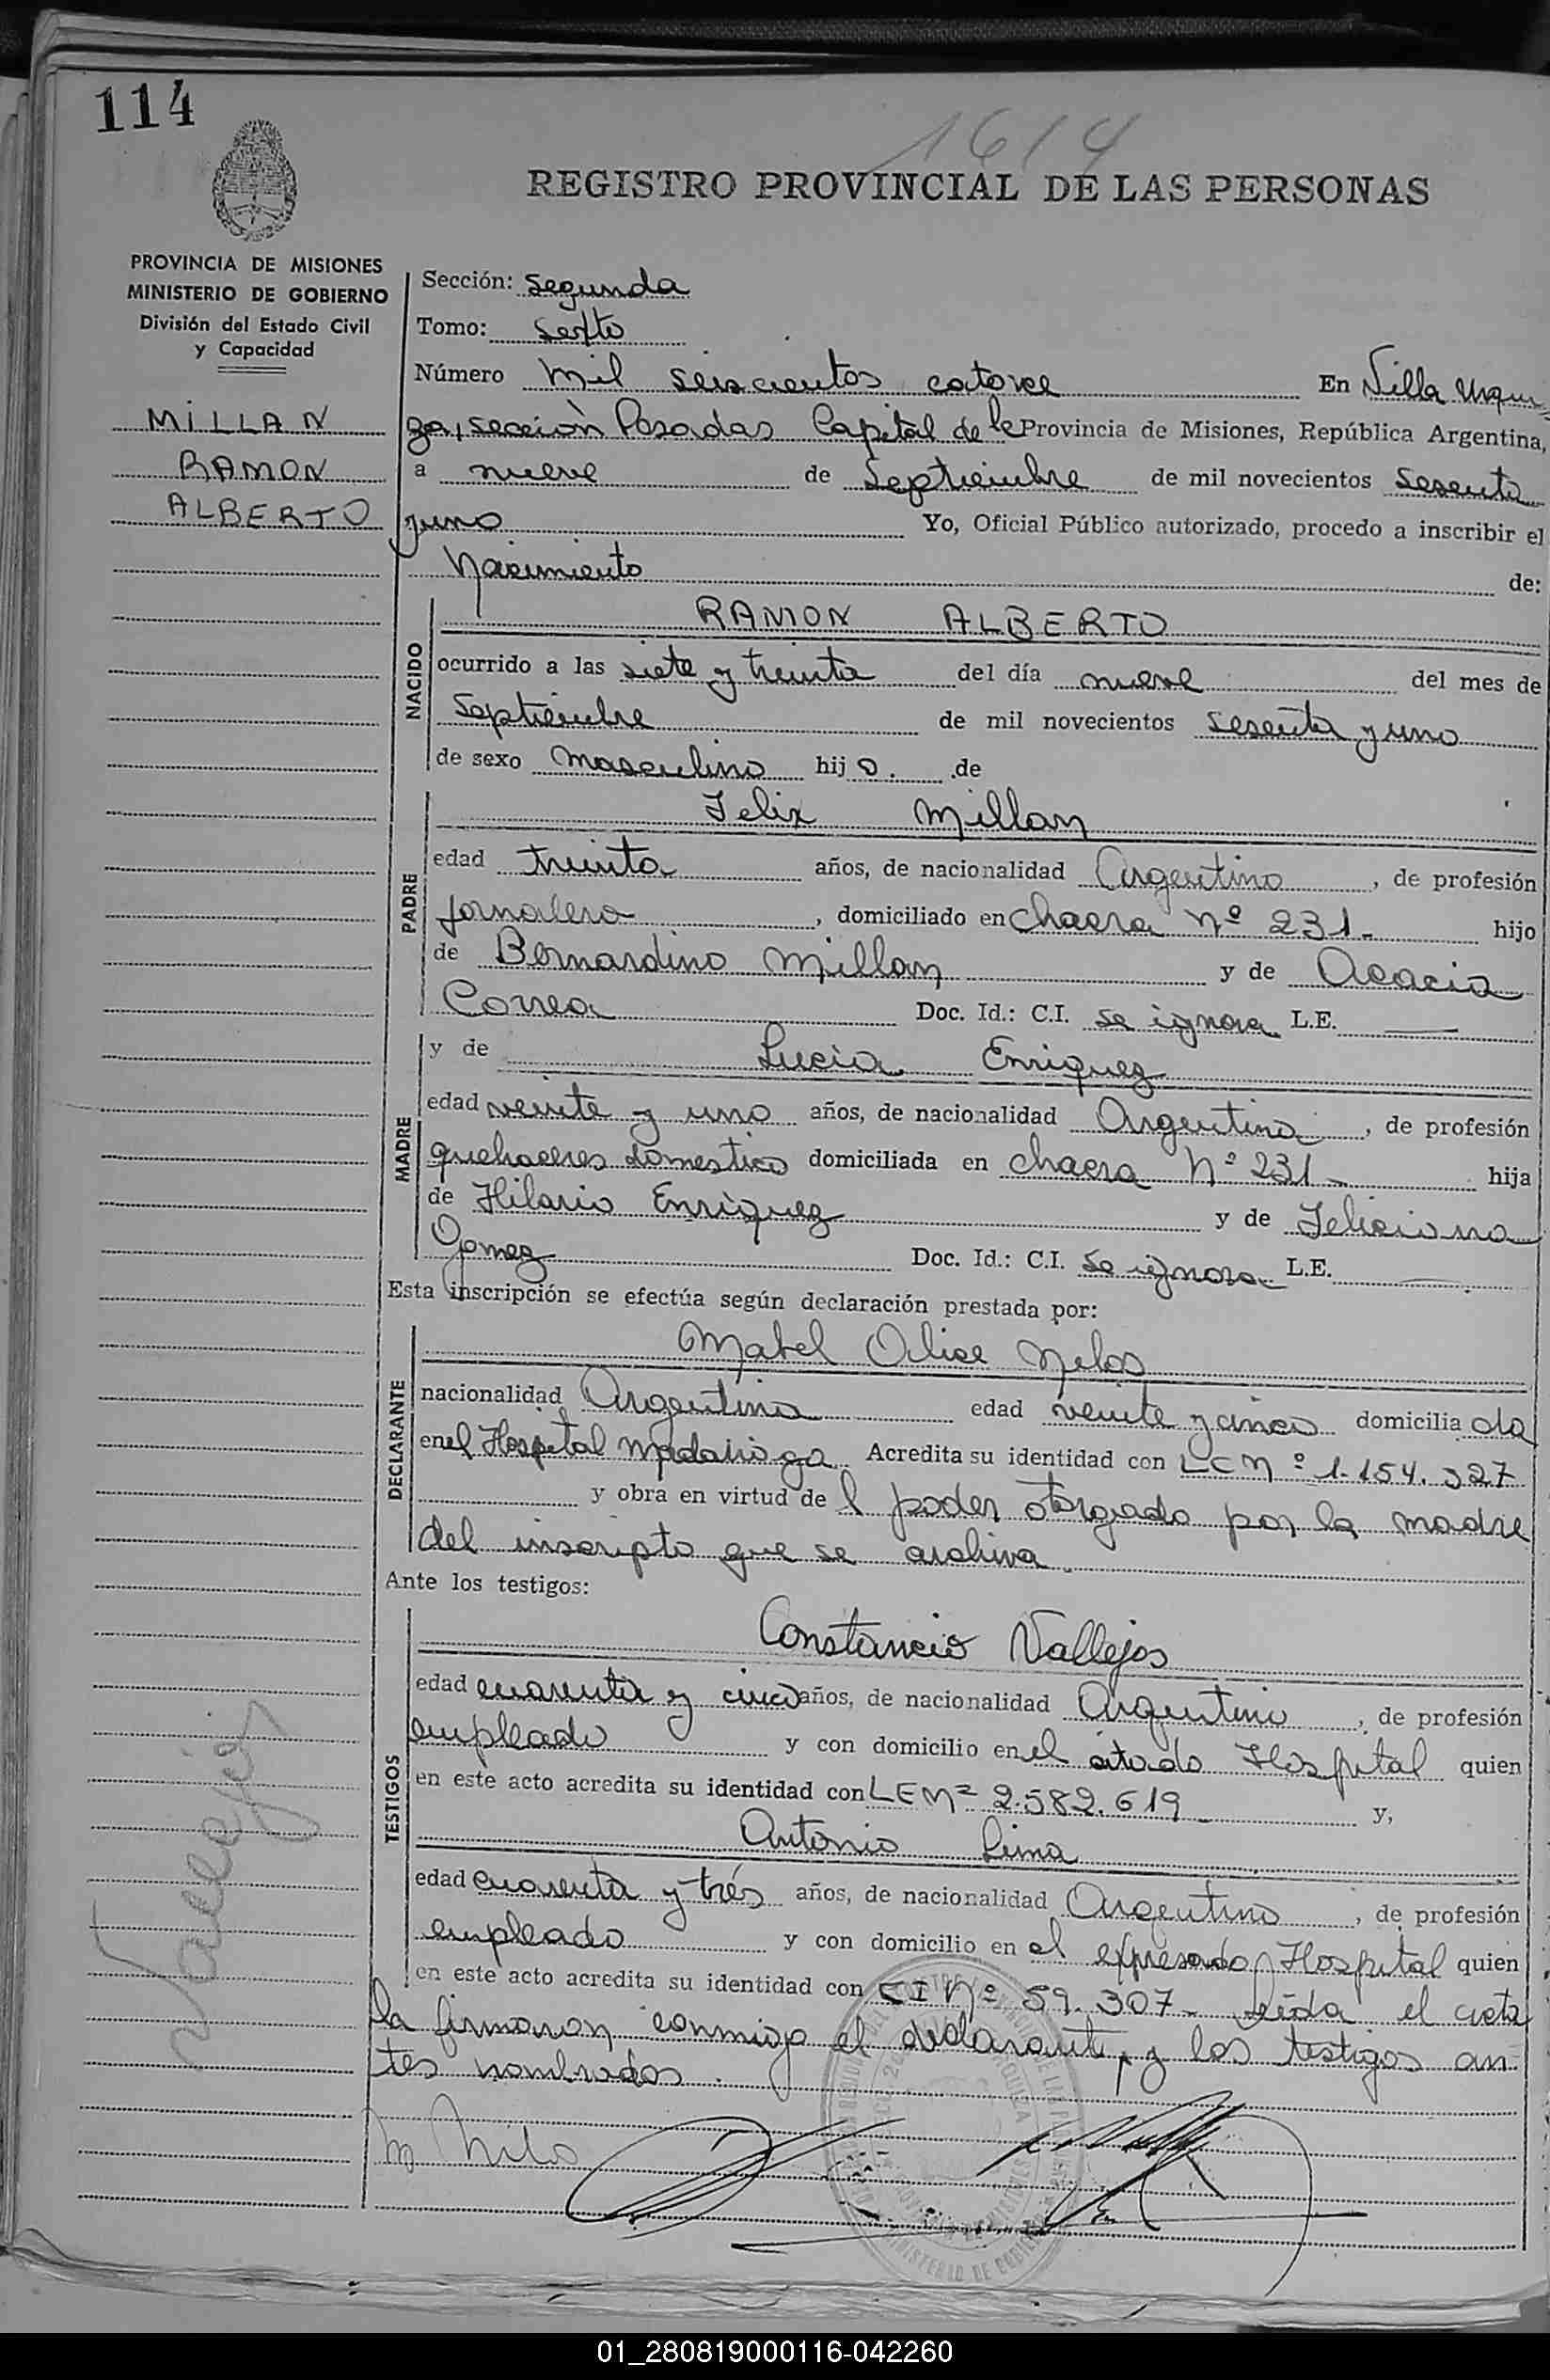 114
1614
REGISTRO PROVINCIAL DE LAS PERSONAS
PROVINCIA DE MISIONES
MINISTERIO DE GOBIERNO
División del Estado Civil
y Capacidad
MILLAN
RAMON
ALBERTO
Sección: Segunda
Tomo: Sexto
Número mil seiscientos catorce En Villa Urqui-
za, sección Posadas Capital de la Provincia de Misiones, República Argentina,
a nueve de Septiembre de mil novecientos sesenta
y uno Yo, Oficial Público autorizado, procedo a inscribir el
Nacimiento de:
NACIDO
RAMON ALBERTO
ocurrido a las siete y treinta del día nueve del mes de
Septiembre de mil novecientos sesenta y uno
de sexo masculino hijo. de
PADRE
Felix Millan
edad treinta años, de nacionalidad Argentino, de profesión
jornalero, domiciliado en chacra Nº 231- hijo
de Bernardino Millan y de Acacia
Correa Doc. Id.: C.I. se ignora L.E. —
MADRE
y de Lucia Enriquez
edad veinte y uno años, de nacionalidad Argentina, de profesión
quehaceres domestico domiciliada en chacra Nº 231- hija
de Hilario Enriquez y de Feliciana
Gomez Doc. Id.: C.I. Se ignora L.E. —
Esta inscripción se efectúa según declaración prestada por:
DECLARANTE
Mabel Melos
nacionalidad Argentina edad veinte y cinco domiciliada
en el Hospital Madariaga Acredita su identidad con LC Nº 1.154.327
y obra en virtud del poder otorgado por la madre
del inscripto que se archiva
Ante los testigos:
TESTIGOS
Constancio Vallejos
edad cuarenta y cinco años, de nacionalidad Argentino, de profesión
empleado y con domicilio en el citado Hospital quien
en este acto acredita su identidad con LE Nº 2.582.619 y,
Antonio Lima
edad cuarenta y trés años, de nacionalidad Argentino, de profesión
empleado y con domicilio en el expresado Hospital quien
en este acto acredita su identidad con CI Nº 59.307- Leída el acta
la firmaron conmigo el declarante, y los testigos an-
tes nombrados.
Vallejos
01_280819000116-042260